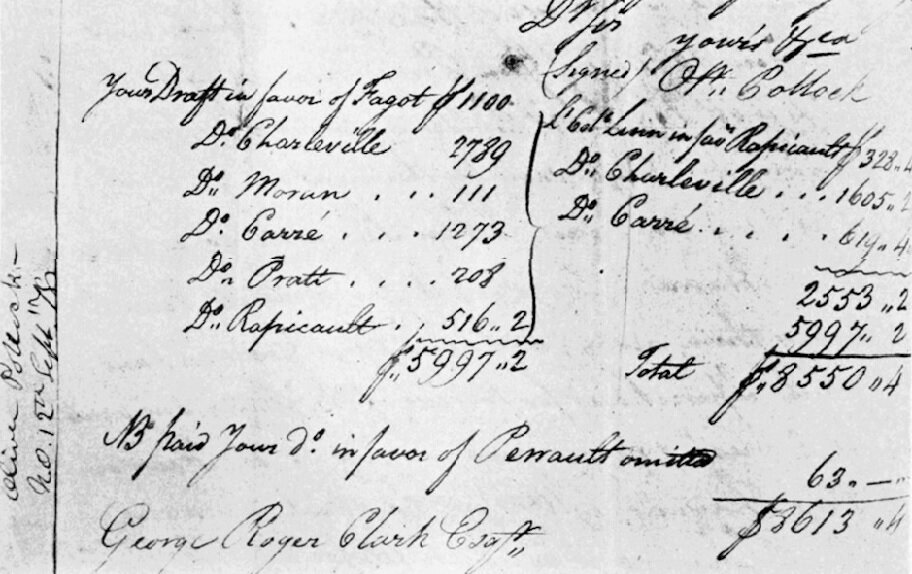 Dr Sir
yours &ca
(Signed) Olr. Pollock
Your Draft in favor of Fagot $1100
Do. Charleville 2789
Do. Moran . . . 111
Do. Carré . . . 1273
Do. Pratt . . . 208
Do. Rapicault . 516 „ 2
$ 5997 „ 2
Lt. Colo. Linn in favr Rapicault $ 328 „ 4
Do. Charleville . . . 1605 „ 2
Do. Carré . . . . 619 „ 4
2553 „ 2
5997 „ 2
Total $ 8550 „ 4
NB. paid Your do. in favor of Perrault omitted 63 „ —
$ 8613 „ 4
George Roger Clark Esqr.
Oliver Pollock —
N.O. 12th Sept. 78